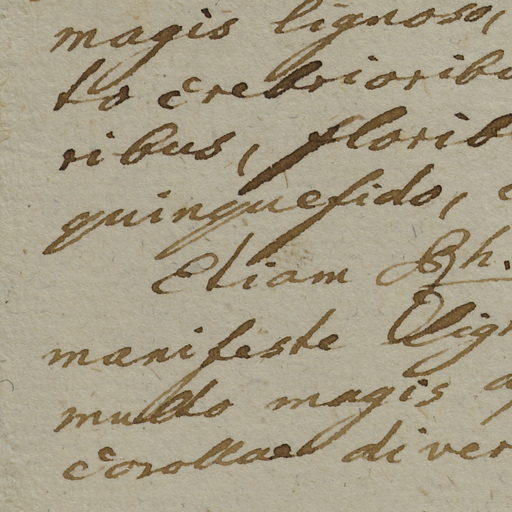 magis lignoso,
to crebrioribu
ribus, florib
quinquefido,
Etiam Rh.
manifeste Olign
multo magis a
Corollae diver